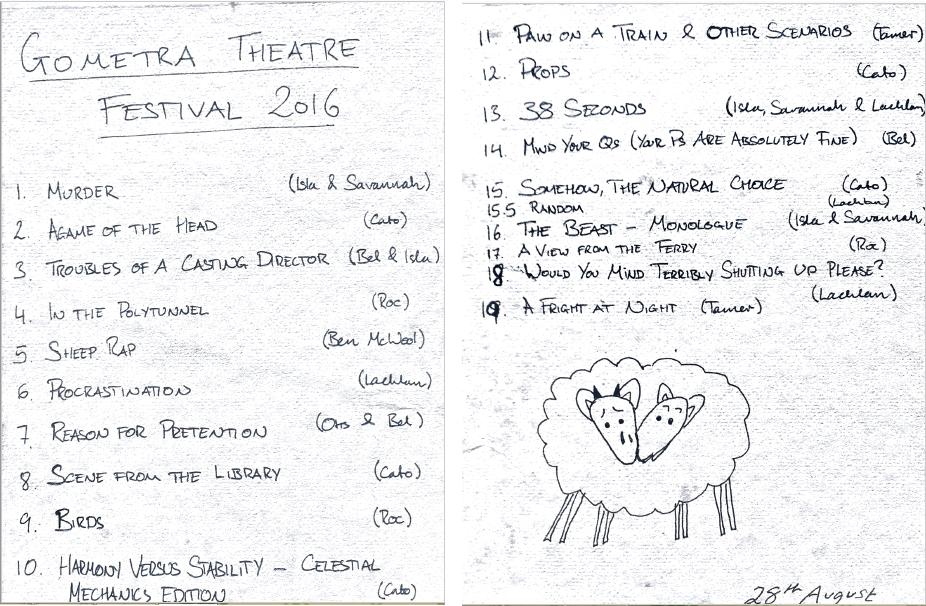 GOMETRA THEATRE
FESTIVAL 2016
1. MURDER (Isla & Savannah)
2. AGAME OF THE HEAD (Cato)
3. TROUBLES OF A CASTING DIRECTOR (Bel & Isla)
4. IN THE POLYTUNNEL (Roc)
5. SHEEP RAP (Ben McWool)
6. PROCRASTINATION (Lachlan)
7. REASON FOR PRETENTION (Otis & Bel)
8. SCENE FROM THE LIBRARY (Cato)
9. BIRDS (Roc)
10. HARMONY VERSUS STABILITY – CELESTIAL
MECHANICS EDITION (Cato)
11. PAW ON A TRAIN & OTHER SCENARIOS (Tamer)
12. PROPS (Cato)
13. 38 SECONDS (Isla, Savannah & Lachlan)
14. MIND YOUR QS (YOUR PS ARE ABSOLUTELY FINE) (Bel)
15. SOMEHOW, THE NATURAL CHOICE (Cato)
15.5 RANDOM (Lachlan)
16. THE BEAST – MONOLOGUE (Isla & Savannah)
17. A VIEW FROM THE FERRY (Roc)
18 WOULD YOU MIND TERRIBLY SHUTTING UP PLEASE?
(Lachlan)
19. A FRIGHT AT NIGHT (Tamer)
28th August